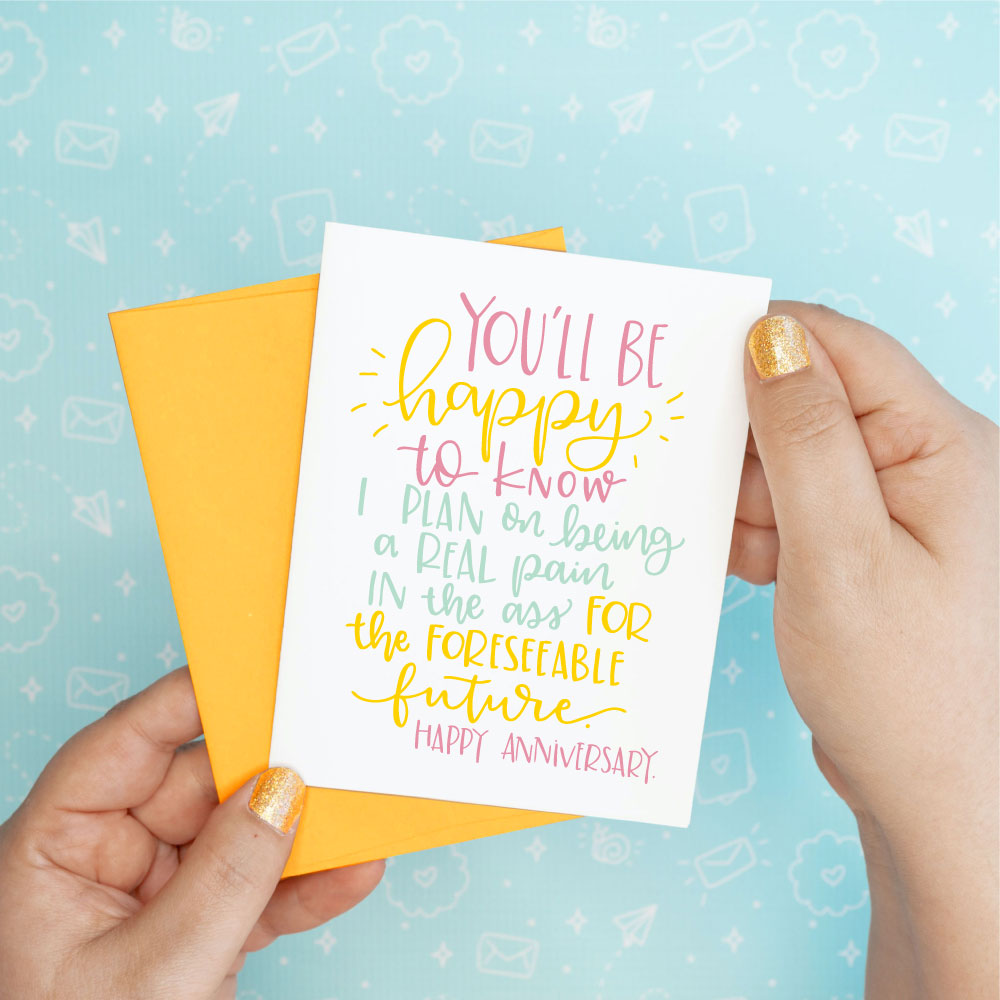 YOU'LL BE
happy
to KNOW
I PLAN on being
a REAL pain
IN the ass FOR
the FORESEEABLE
future.
HAPPY ANNIVERSARY.